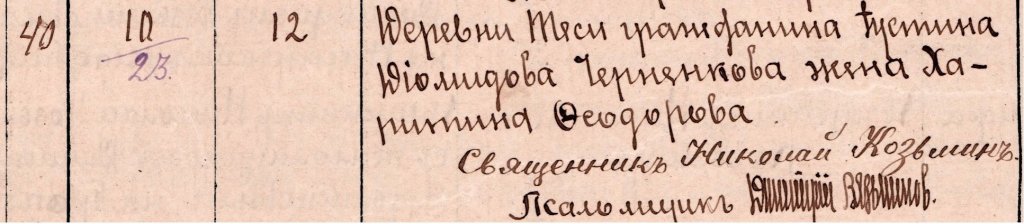 40 10/23. 12 Деревни Теси гражданина Іустина
Діомидова Черненкова жена Ха-
ритина Ѳеодорова
Священникъ Николай Козьминъ.
Псаломщикъ Димитрій